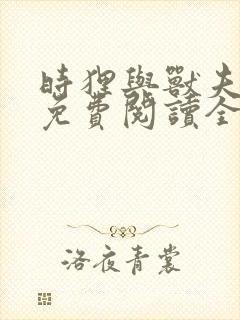 時狸與獸夫
免費閱讀全
洛夜青裳